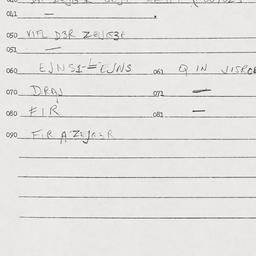 041 —
050 VIFL D3R ZEJG3R
051 —
060 EJNS1-EJNS 061 Q IN
070 DRAJ 071 —
080 FIR 081 —
090 FIR A ZEJG3R